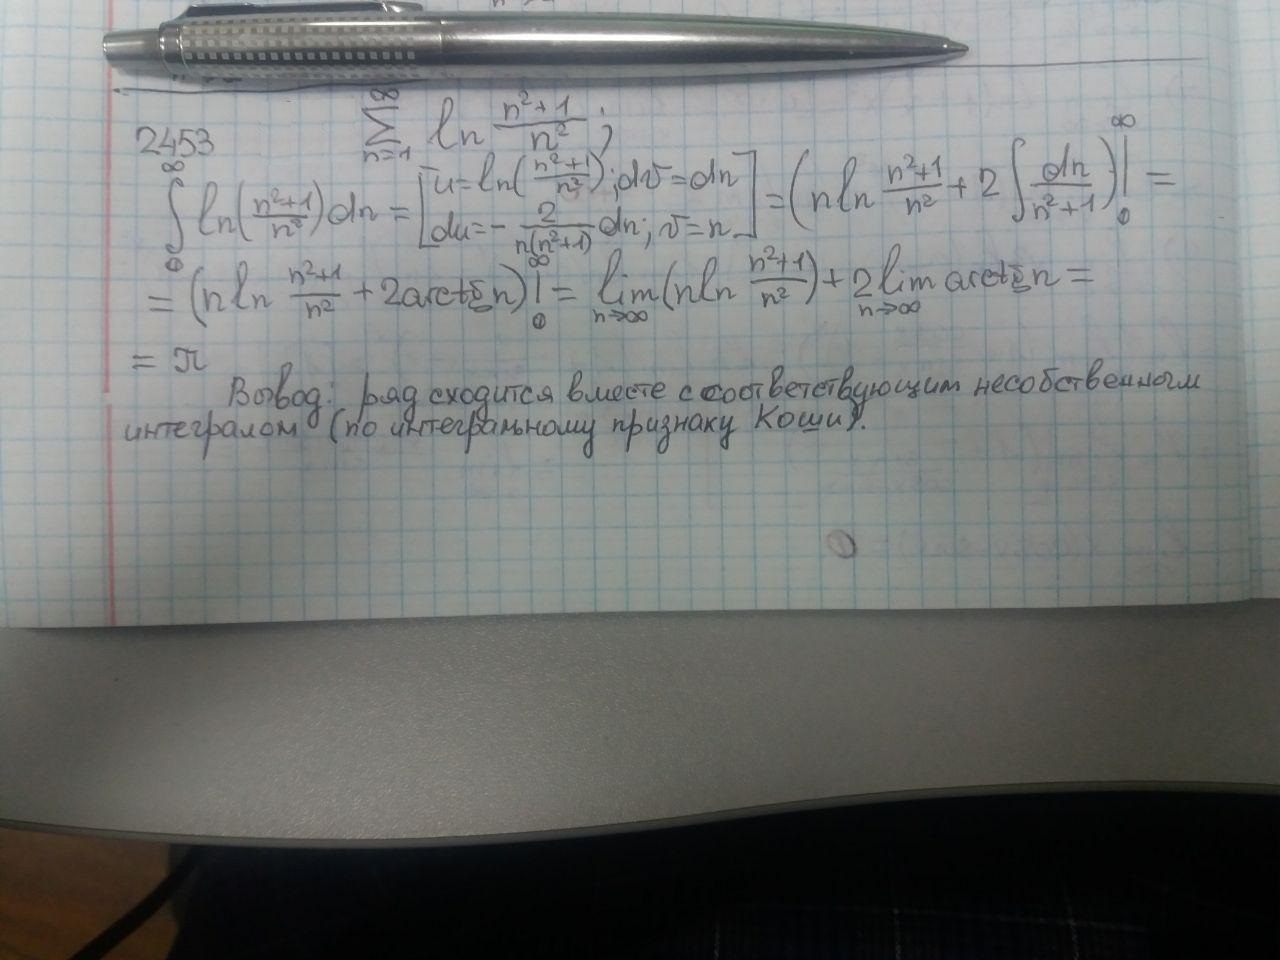 2453 ∞∑n=1 ln (n²+1)/n² ;
∞∫0 ln((n²+1)/n²)dn = [u=ln((n²+1)/n²); dv=dn du=-2/(n(n²+1))dn; v=n] = (n ln (n²+1)/n² + 2∫dn/(n²+1))|∞0 =
= (n ln (n²+1)/n² + 2arctg n)|∞0 = lim n→∞ (n ln (n²+1)/n²) + 2 lim n→∞ arctg n =
= π
Вывод: ряд сходится вместе с соответствующим несобственным
интегралом (по интегральному признаку Коши).